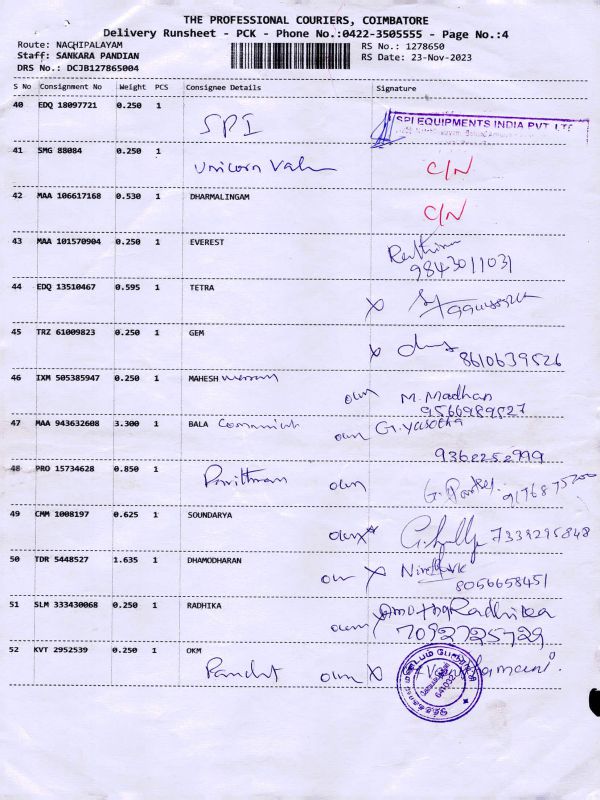 THE PROFESSIONAL COURIERS, COIMBATORE
Delivery Runsheet - PCK - Phone No.:0422-3505555 - Page No.:4
Route: NACHIPALAYAM RS No.: 1278650
Staff: SANKARA PANDIAN RS Date: 23-Nov-2023
DRS No.: DCJB127865004
S No Consignment No Weight PCS Consignee Details Signature
40 EDQ 18097721 0.250 1 SPI SPI EQUIPMENTS INDIA PVT LTD
41 SMG 88084 0.250 1 Unicorn C/N
42 MAA 106617168 0.530 1 DHARMALINGAM C/N
43 MAA 101570904 0.250 1 EVEREST
9843011031
44 EDQ 13510467 0.595 1 TETRA X
45 TRZ 61009823 0.250 1 GEM X 8610639526
46 IXM 505385947 0.250 1 MAHESH own M. Madhan
9566989527
47 MAA 943632608 3.300 1 BALA own G. Yasotha
9362252999
48 PRO 15734628 0.850 1 own G.
49 CMM 1008197 0.625 1 SOUNDARYA own 7339295848
50 TDR 5448527 1.635 1 DHAMODHARAN own X
8056658451
51 SLM 333430068 0.250 1 RADHIKA own Radhika
7092725729
52 KVT 2952539 0.250 1 OKM
Pandit own X